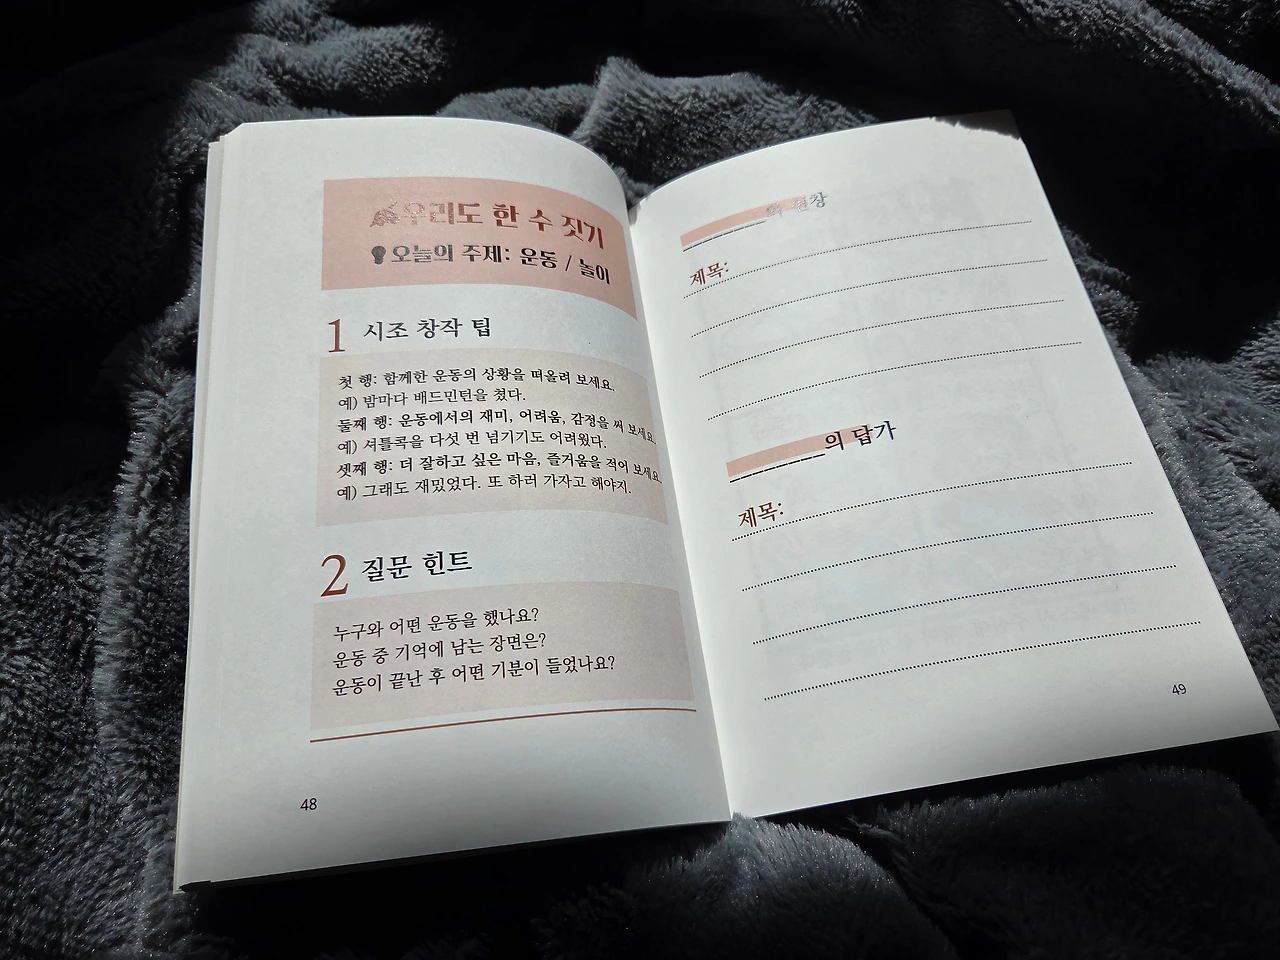 우리도 한 수 짓기
오늘의 주제: 운동 / 놀이
1 시조 창작 팁
첫 행: 함께한 운동의 상황을 떠올려 보세요.
예) 밤마다 배드민턴을 쳤다.
둘째 행: 운동에서의 재미, 어려움, 감정을 써 보세요.
예) 셔틀콕을 다섯 번 넘기기도 어려웠다.
셋째 행: 더 잘하고 싶은 마음, 즐거움을 적어 보세요.
예) 그래도 재밌었다. 또 하러 가자고 해야지.
2 질문 힌트
누구와 어떤 운동을 했나요?
운동 중 기억에 남는 장면은?
운동이 끝난 후 어떤 기분이 들었나요?
48
의 선창
제목:
의 답가
제목:
49